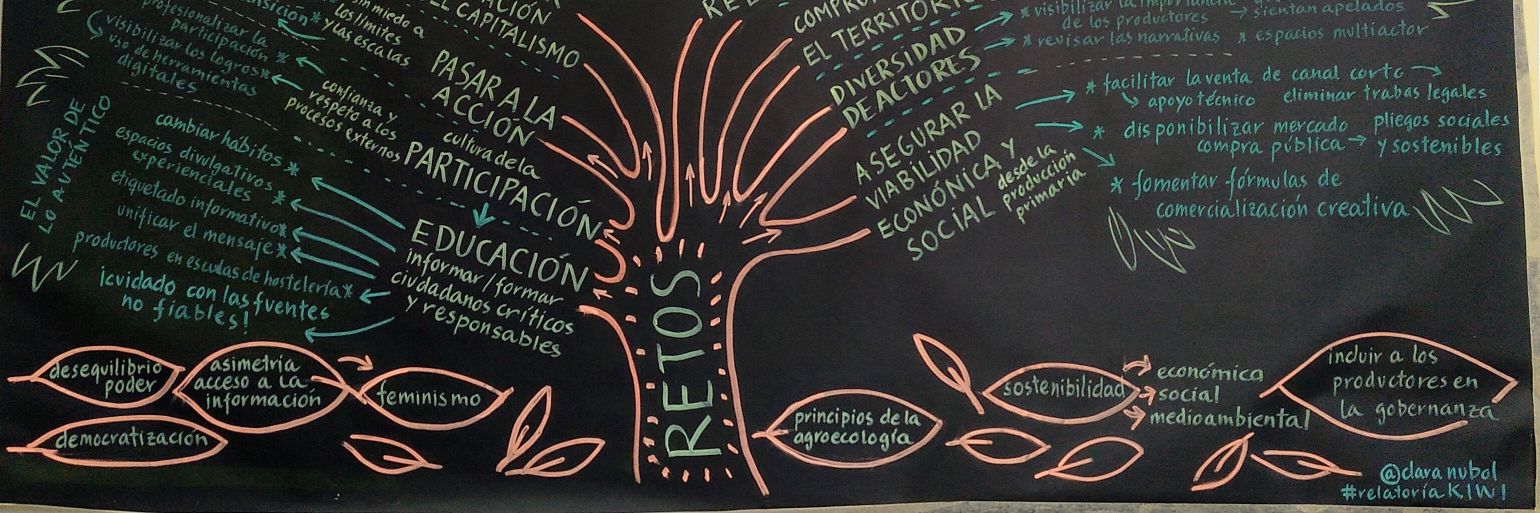 EL CAPITALISMO
sin miedo a
los límites
y las escalas
PASAR A LA
ACCIÓN
profesionalizar la
participación *
visibilizar los logros *
uso de herramientas
digitales
confianza y
respeto a los
procesos externos
cultura de la
PARTICIPACIÓN
EL VALOR DE
LO AUTÉNTICO
cambiar hábitos *
espacios divulgativos *
experienciales
etiquetado informativo *
unificar el mensaje *
productores en escuelas de hostelería *
¡cuidado con las fuentes
no fiables!
EDUCACIÓN
informar/formar
ciudadanos críticos
y responsables
RETOS
EL TERRITORIO
DIVERSIDAD
DE ACTORES
* visibilizar la importancia
de los productores → sientan apelados
* revisar las narrativas * espacios multiactor
ASEGURAR LA
VIABILIDAD
ECONÓMICA Y
SOCIAL
desde la
producción
primaria
* facilitar la venta de canal corto →
apoyo técnico eliminar trabas legales
* disponibilizar mercado pliegos sociales
compra pública → y sostenibles
* fomentar fórmulas de
comercialización creativa
desequilibrio
poder
asimetría
acceso a la
información
feminismo
democratización
principios de la
agroecología
sostenibilidad
económica
social
medioambiental
incluir a los
productores en
la gobernanza
@clara nubol
#relatoría KIWI